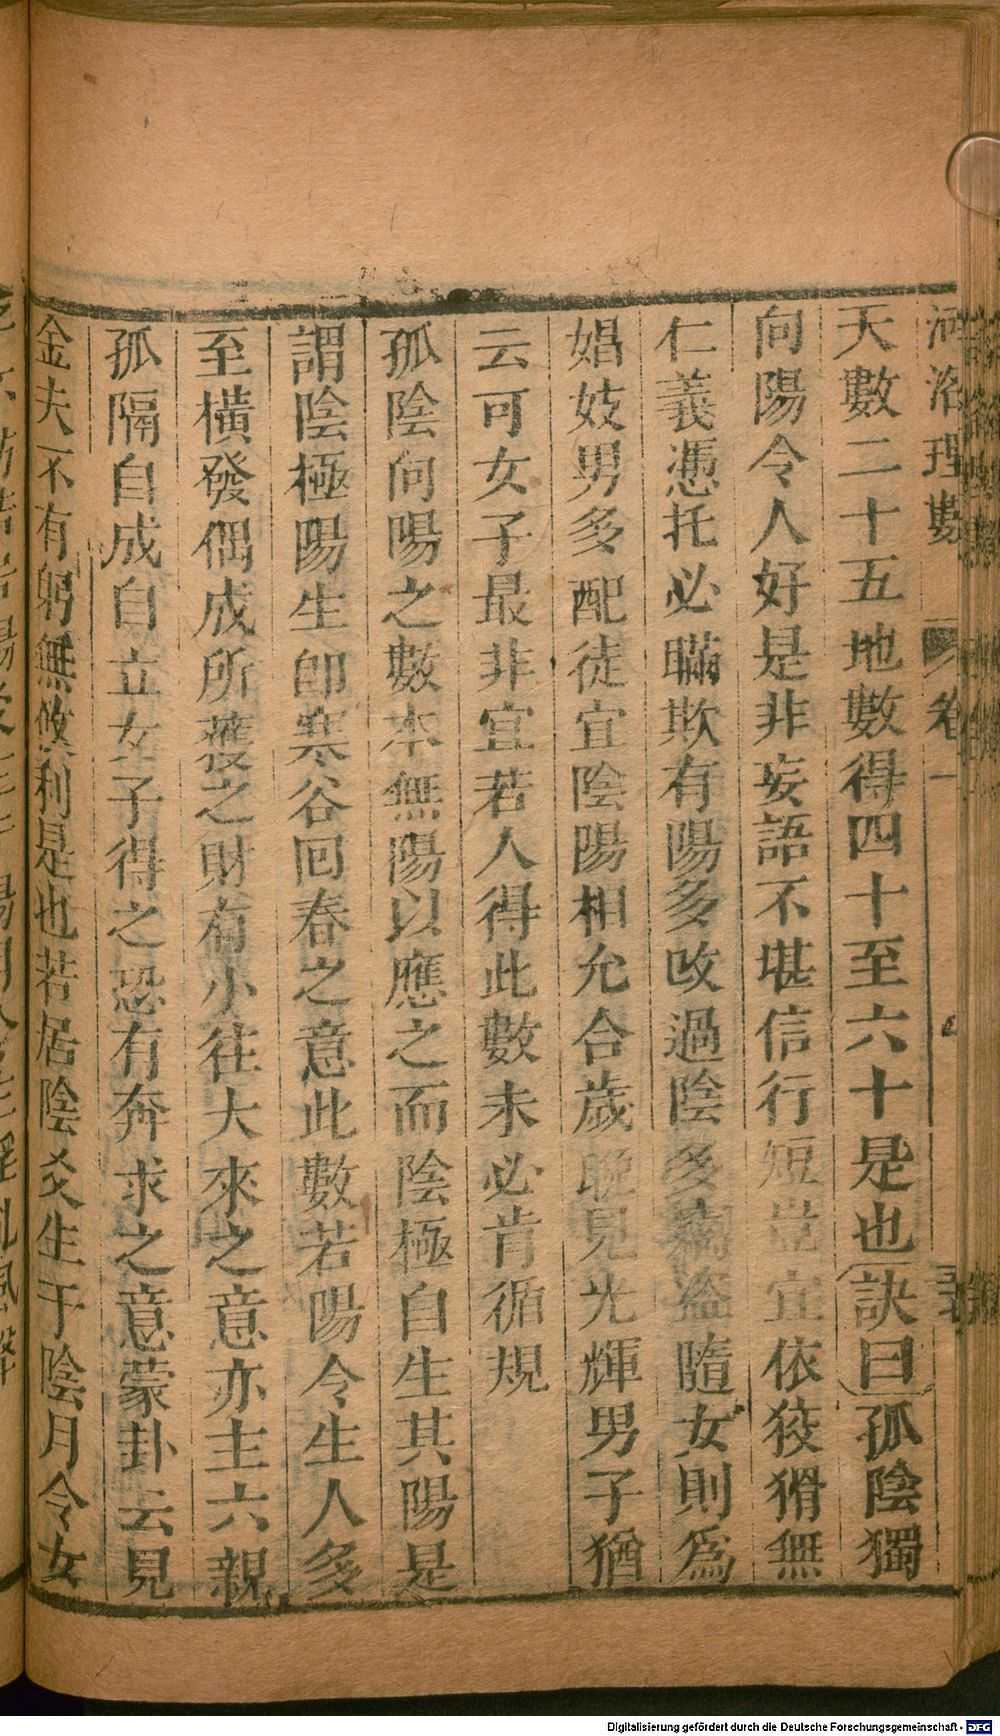 河洛理數 卷一
天數二十五地數得四十至六十是也訣曰孤陰獨
向陽令人好是非妄語不堪信行短豈宜依狡猾無
仁義憑托必瞞欺有陽多改過陰多竊盜隨女則爲
娼妓男多配徒宜陰陽相允合歲晚見光輝男子猶
云可女子最非宜若人得此數未必肯循規
孤陰向陽之數本無陽以應之而陰極自生其陽是
謂陰極陽生卽寒谷回春之意此數若陽令生人多
至橫發偶成所獲之財有小往大來之意亦主六親
孤隔自成自立女子得之恐有奔求之意蒙卦云見
金夫不有躬無攸利是也若居陰爻生于陰月令女
Digitalisierung gefördert durch die Deutsche Forschungsgemeinschaft - DFG